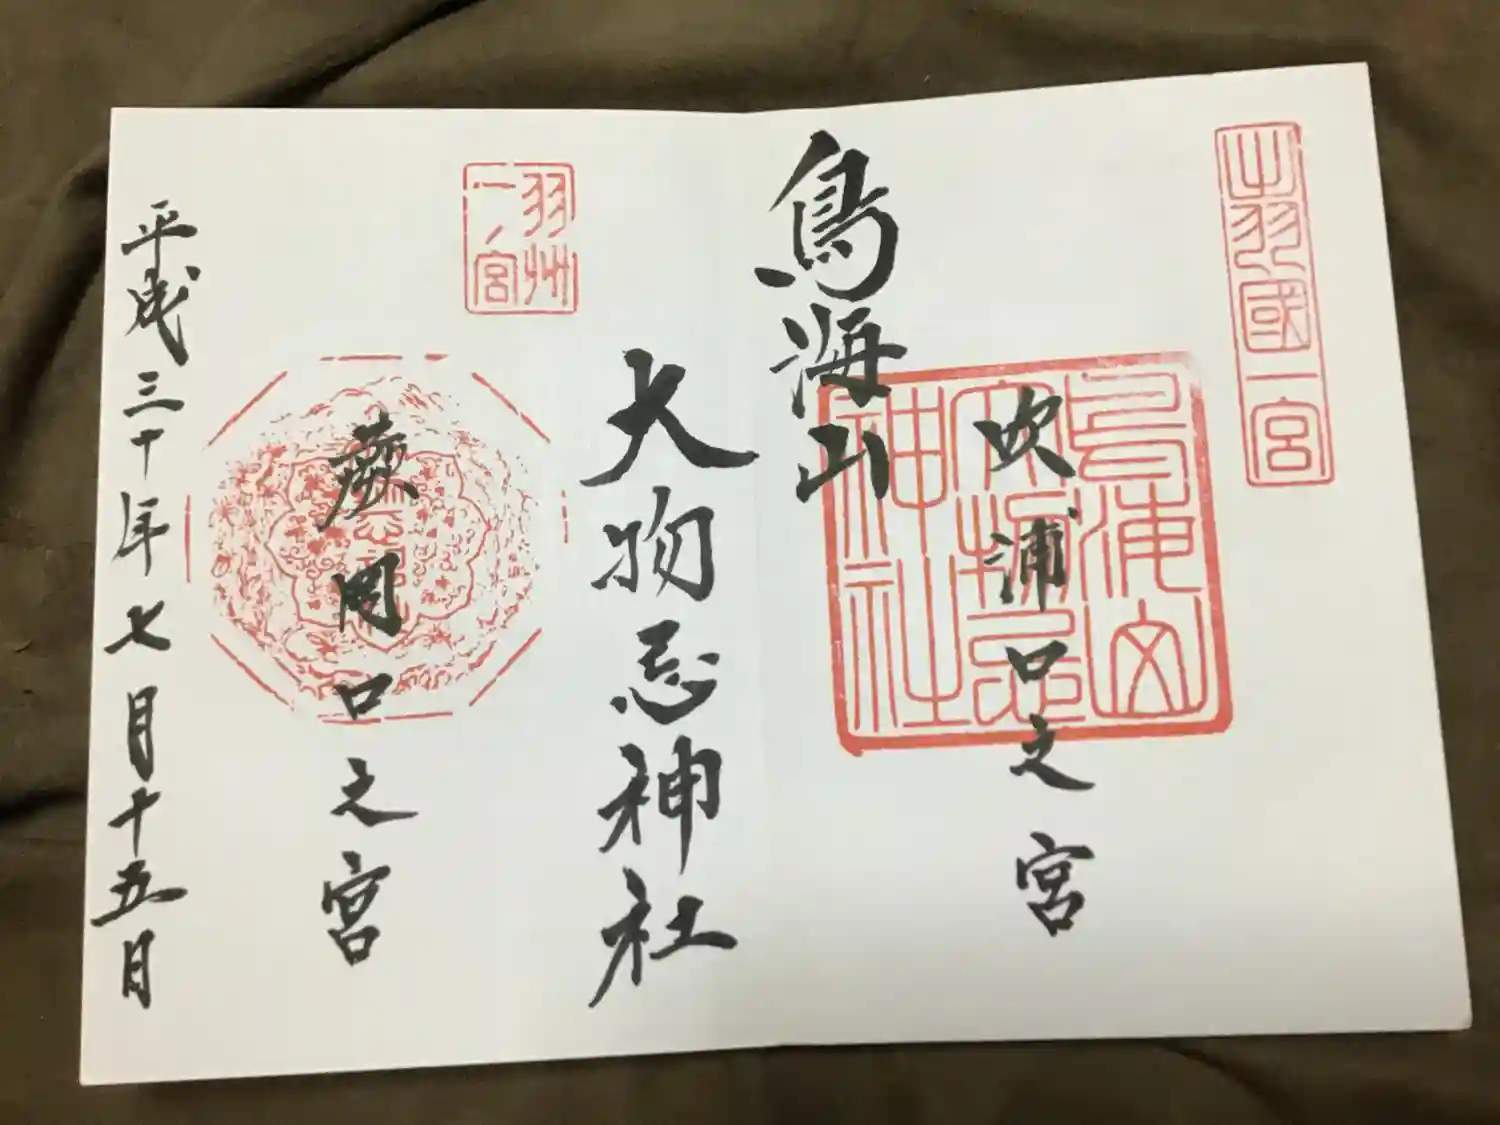 出羽國一宮
吹浦口之宮
鳥海山
大物忌神社
羽州
一ノ宮
蕨岡口之宮
平成三十年七月十五日